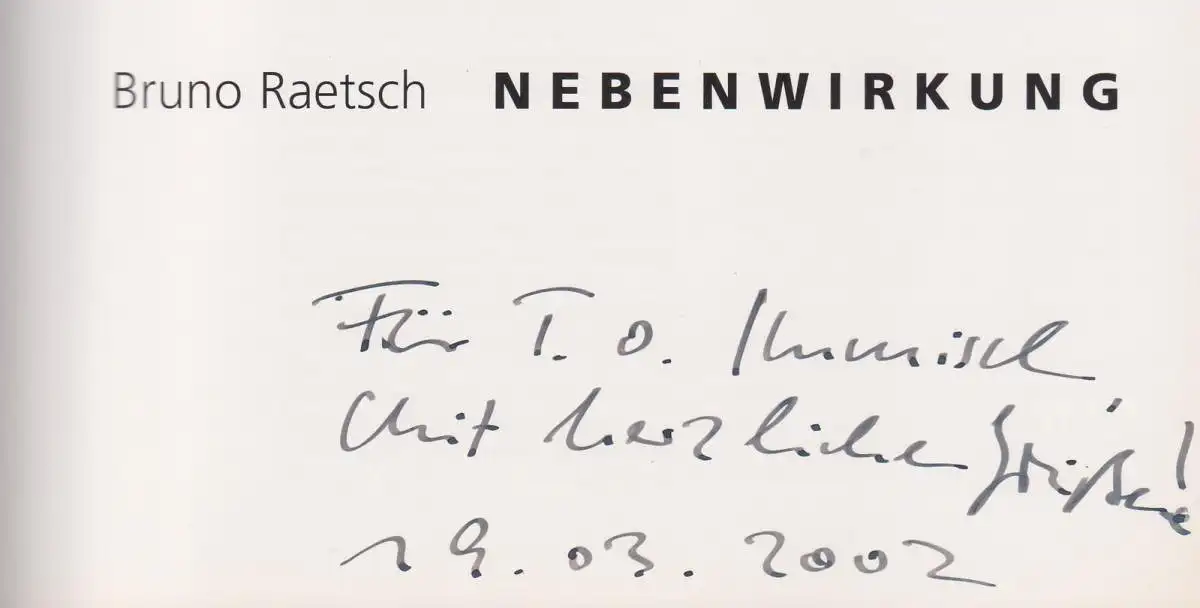 Bruno Raetsch NEBENWIRKUNG
Für T. O. Immisch
Mit herzlichen Grüßen!
19.03.2002